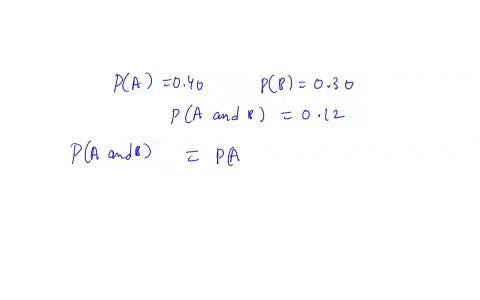 P(A) = 0.40 P(B) = 0.30
P(A and B) = 0.12
P(A and B) = P(A